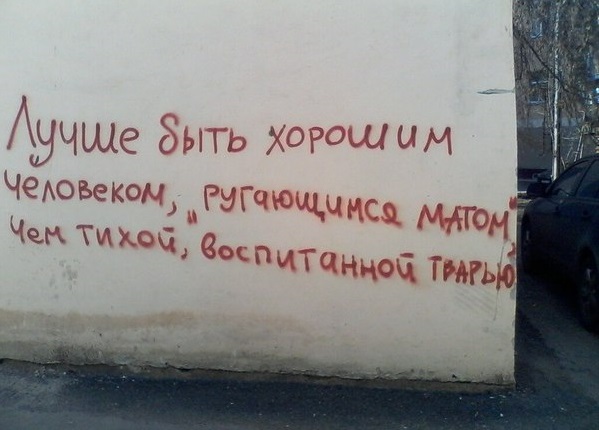 Лучше быть хорошим
человеком, "ругающимся матом",
чем тихой, воспитанной тварью